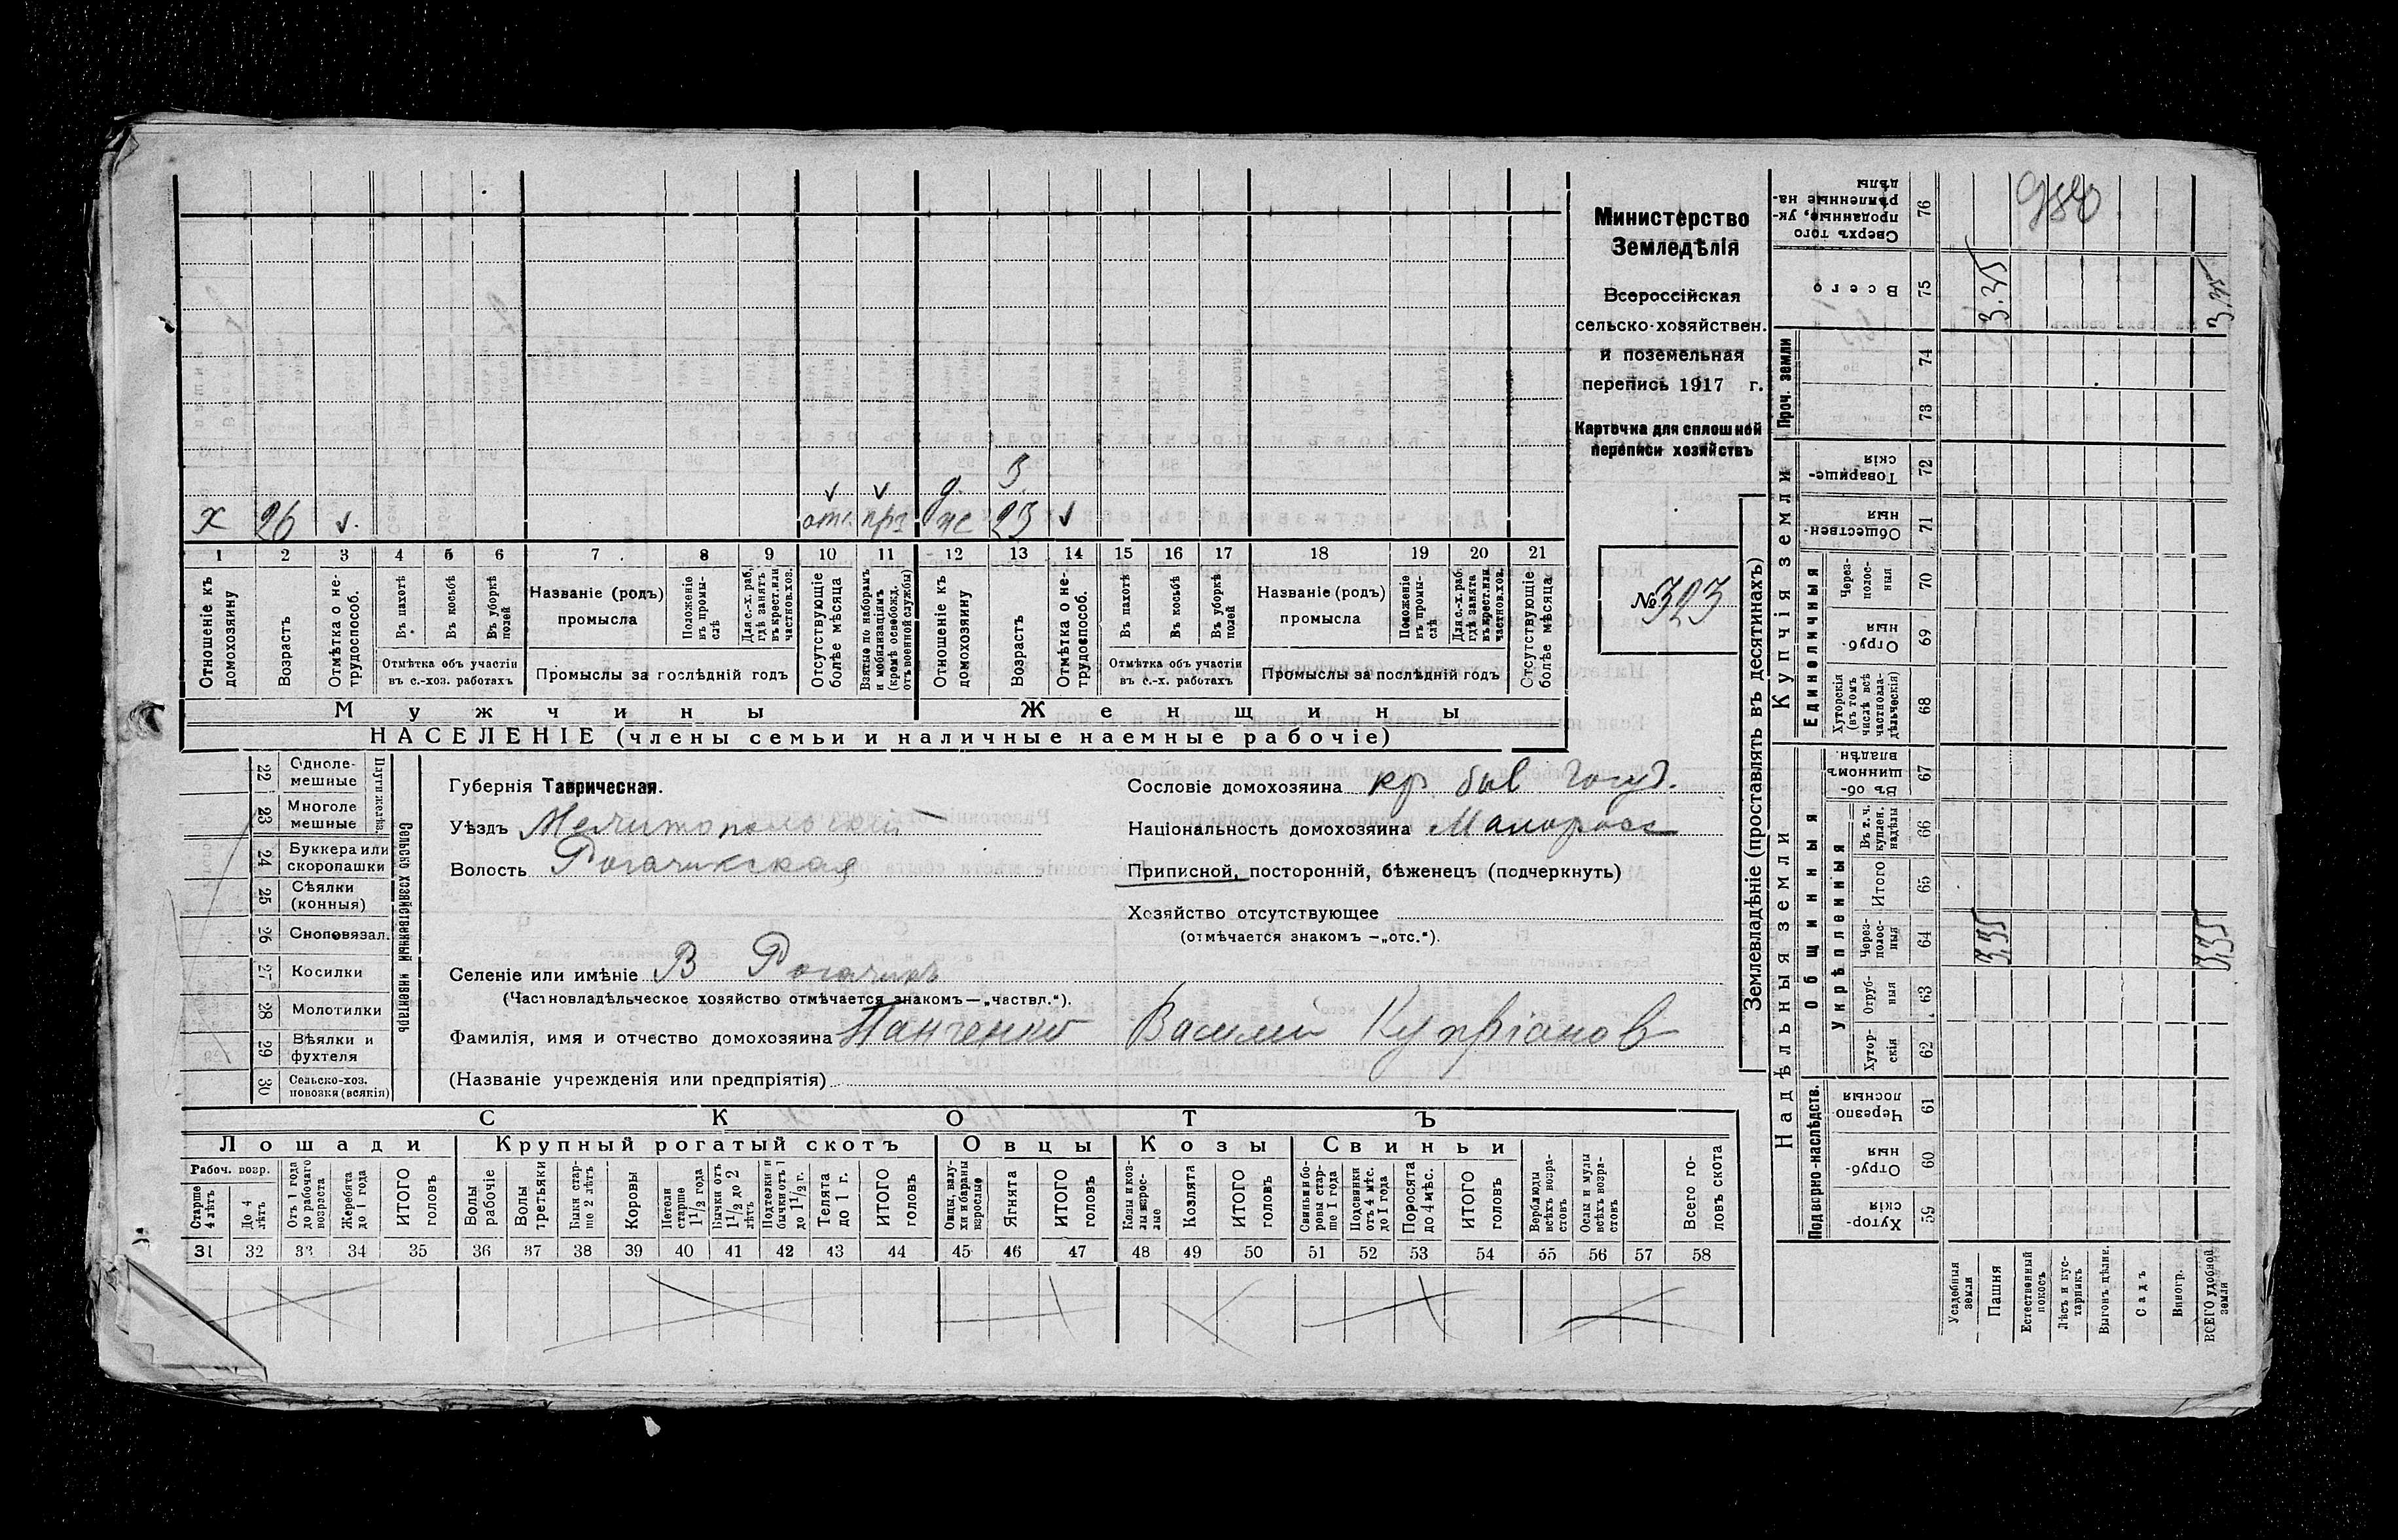 Министерство
Земледѣлія
Всероссійская
сельско-хозяйствен.
и поземельная
перепись 1917 г.
Карточка для сплошной
переписи хозяйствъ
№ 323
д. 3
х 26 v. отс. v пр. v же 23 v
1 2 3 4 5 6 7 8 9 10 11 12 13 14 15 16 17 18 19 20 21
Отношеніе къ домохозяину
Возрастъ
Отмѣтка о не-трудоспособ.
Въ пахотѣ
Въ косьбѣ
Въ уборкѣ полей
Отмѣтка объ участіи
въ с.-хоз. работахъ
Названіе (родъ)
промысла
Положеніе въ промы-слѣ
Для с.-х. раб. гдѣ занятъ въ крест. или частнов. хоз.
Промыслы за послѣдній годъ
Отсутствующіе болѣе мѣсяца
Взятые по наборамъ и мобилизаціямъ (кромѣ освобожд. отъ военной службы)
Отношеніе къ домохозяину
Возрастъ
Отмѣтка о не-трудоспособ.
Въ пахотѣ
Въ косьбѣ
Въ уборкѣ полей
Отмѣтка объ участіи
въ с.-х. работахъ
Названіе (родъ)
промысла
Положеніе въ промы-слѣ
Для с.-х. раб. гдѣ занята въ крест. или частнов. хоз.
Промыслы за послѣдній годъ
Отсутствующіе болѣе мѣсяца
Мужчины Женщины
НАСЕЛЕНІЕ (члены семьи и наличные наемные рабочіе)
22 Одноле-мешные
23 Многоле мешные
Плуги желѣз.
24 Буккера или скоропашки
25 Сѣялки (конныя)
26 Сноповязал.
27 Косилки
28 Молотилки
29 Вѣялки и фухтеля
30 Сельско-хоз. повозки (всякія)
Сельско хозяйственный инвентарь
Губернія Таврическая.
Уѣздъ Мелитопольскій
Волость Рогачикская
Селеніе или имѣніе В Рогачикъ
(Частновладѣльческое хозяйство отмѣчается знакомъ—„частвл.“).
Фамилія, имя и отчество домохозяина Панченко Василій Купріанов
(Названіе учрежденія или предпріятія)
Сословіе домохозяина кр. быв госуд.
Національность домохозяина Малоросс
Приписной, посторонній, бѣженецъ (подчеркнуть)
Хозяйство отсутствующее
(отмѣчается знакомъ —„отс.“).
СКОТЪ
Лошади Крупный рогатый скотъ Овцы Козы Свиньи
Рабоч. возр.
Старше 4 лѣтъ
До 4 лѣтъ
Отъ 1 года до рабочаго возраста
Жеребята до 1 года
ИТОГО головъ
Волы рабочіе
Волы третьяки
Быки стар-ше 2 лѣтъ
Коровы
Нетели старше 1 1/2 года
Бычки отъ 1 1/2 до 2 лѣтъ
Подтелки и бычки отъ 1 до 1 1/2 г.
Телята до 1 г.
ИТОГО головъ
Овцы, валу-хи и бараны взрослые
Ягнята
ИТОГО головъ
Козы и коз-лы взрос-лые
Козлята
ИТОГО головъ
Свиньи и бо-ровы стар-ше 1 года
Подсвинки отъ 4 мѣс. до 1 года
Поросята до 4 мѣс.
ИТОГО головъ
Верблюды всѣхъ возра-стовъ
Ослы и мулы всѣхъ возра-стовъ
Всего го-ловъ скота
31 32 33 34 35 36 37 38 39 40 41 42 43 44 45 46 47 48 49 50 51 52 53 54 55 56 57 58
Землевладѣніе (проставлять въ десятинахъ)
Надѣльныя земли
Купчія земли
Проч. земли
Подворно-наслѣдств.
Общинныя
Укрѣпленныя
Единоличныя
Сверхъ того проданные, ук-рѣпленные на-дѣлы 76
Всего 75 3.35 3,35
74
73
Товарище-скія 72
Обществен-ныя 71
Через-полос-ныя 70
Отруб-ныя 69
Хуторскія (въ томъ числѣ всѣ частновла-дѣльческія) 68
Въ об-щинномъ владѣн. 67
Въ т. ч. куплен. надѣлы 66
Итого 65
Через-полос-ныя 64 3,35 3,35
Отруб-ныя 63
Хутор-скія 62
Черезпо-лосныя 61
Отруб-ныя 60
Хутор-скія 59
Усадебныя земли
Пашня
Естественный покосъ
Лѣсъ и кус-тарникъ
Выгонъ дѣлим.
Садъ
Виногр.
ВСЕГО удобной земли